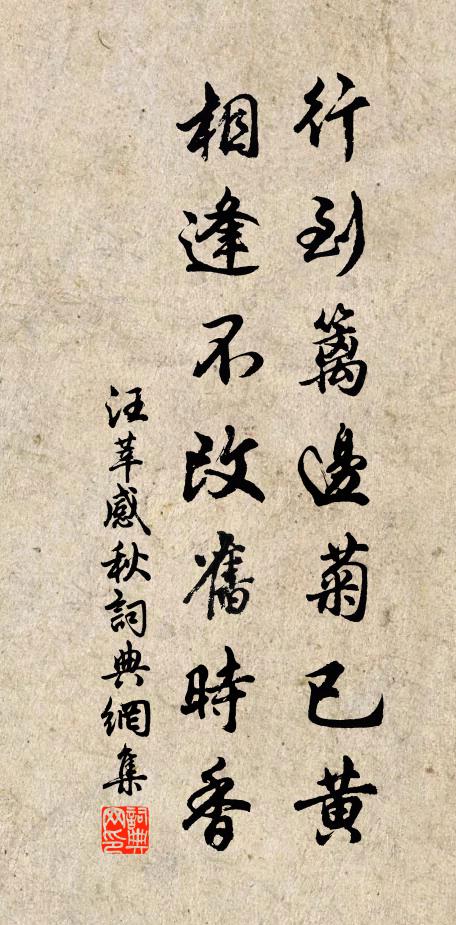 行到籬邊菊已黄
相逢不改舊時香
汪莘感秋詞典網集
詞典網印